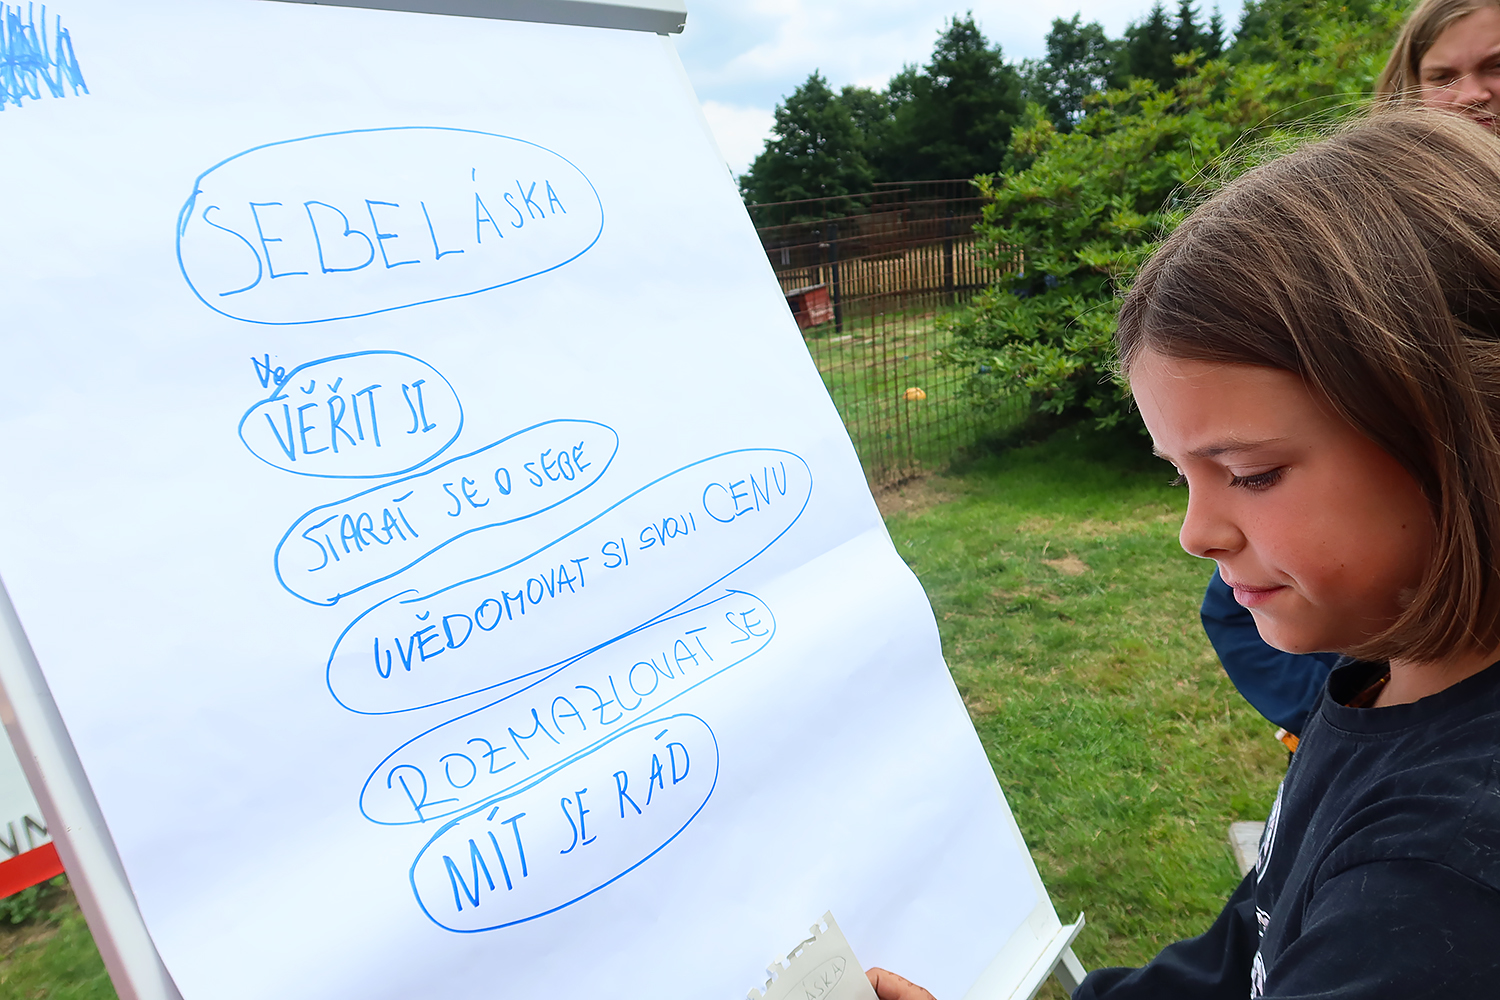 SEBELÁSKA
Vě
VĚŘIT SI
STARAT SE O SEBE
UVĚDOMOVAT SI SVOJI CENU
ROZMAZLOVAT SE
MÍT SE RÁD
ÁSKA